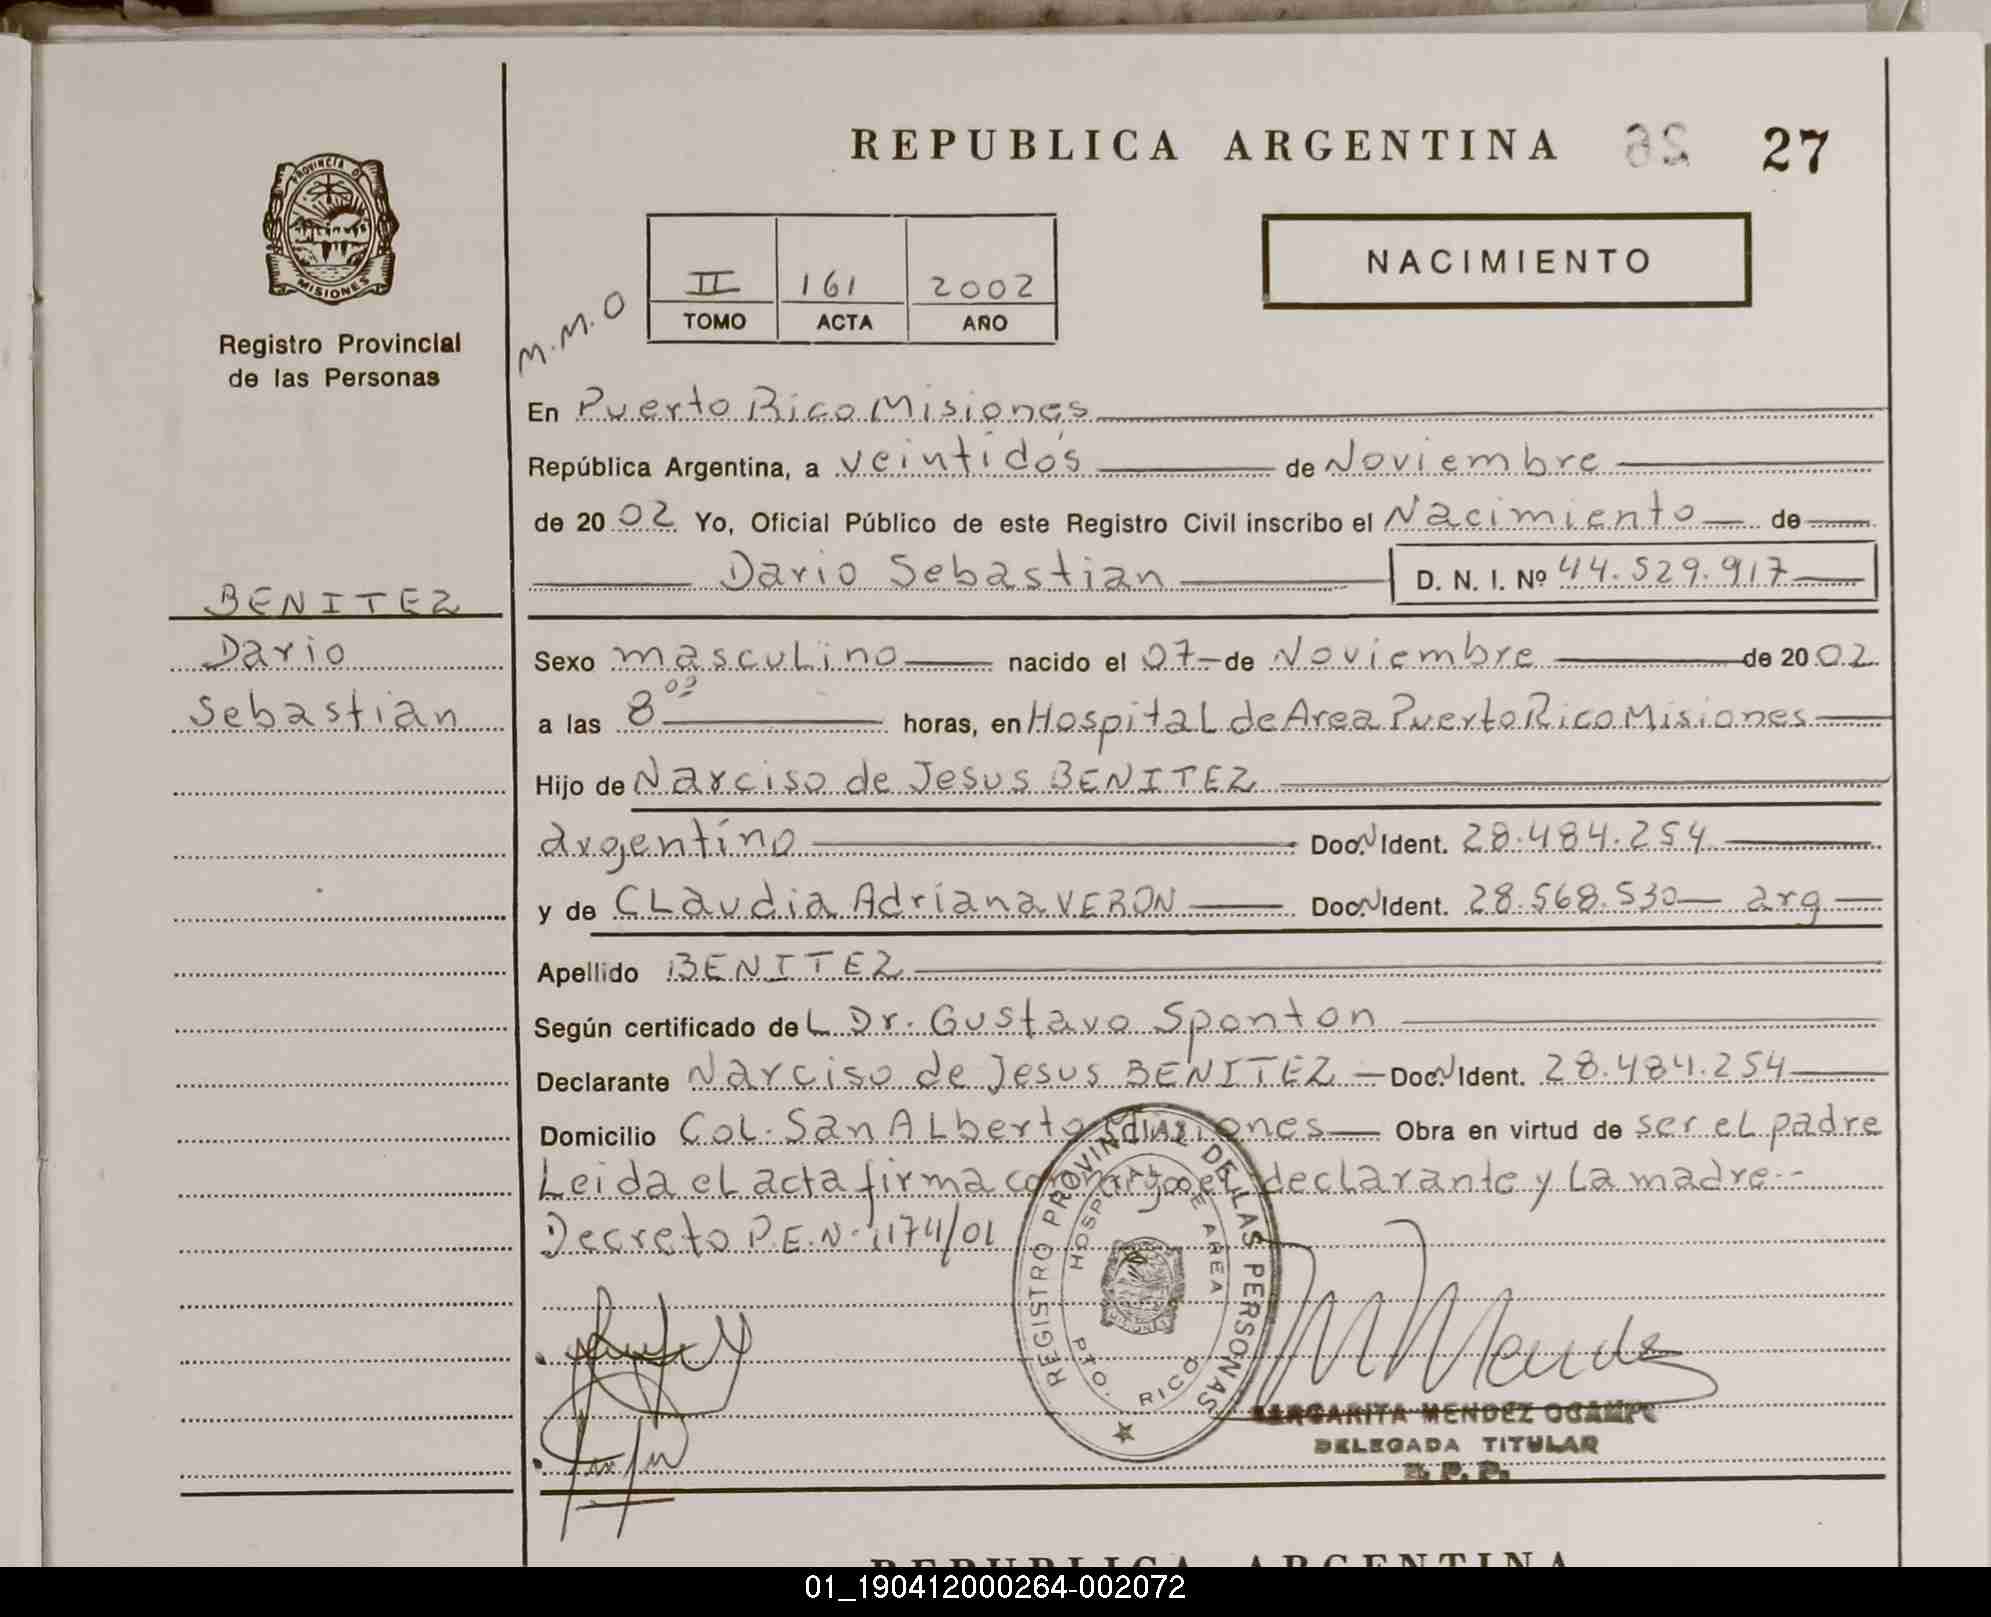 REPUBLICA ARGENTINA 26 27
PROVINCIA D
MISIONES
Registro Provincial
de las Personas
II 161 2002
TOMO ACTA AÑO
NACIMIENTO
M.M.O
En Puerto Rico Misiones
República Argentina, a veintidós de Noviembre
de 2002 Yo, Oficial Público de este Registro Civil inscribo el Nacimiento de
Dario Sebastian D. N. I. Nº 44.529.917
BENITEZ
Dario
Sebastian
Sexo masculino nacido el 07 de Noviembre de 2002
a las 8 00 horas, en Hospital de Area Puerto Rico Misiones
Hijo de Narciso de Jesus BENITEZ
argentino Doc. N Ident. 28.484.254
y de Claudia Adriana VERON Doc. N Ident. 28.568.530 arg
Apellido BENITEZ
Según certificado del Dr. Gustavo Sponton
Declarante Narciso de Jesus BENITEZ Doc. N Ident. 28.484.254
Domicilio Col. San Alberto Misiones Obra en virtud de ser el padre
Leida el acta firma conmigo el declarante y la madre
Decreto P.E.N. 1174/01
REGISTRO PROVINCIAL DE LAS PERSONAS
HOSPITAL DE AREA
PTO. RICO
MARGARITA MENDEZ OCAMPO
DELEGADA TITULAR
R. P. P.
REPUBLICA ARGENTINA
01_190412000264-002072